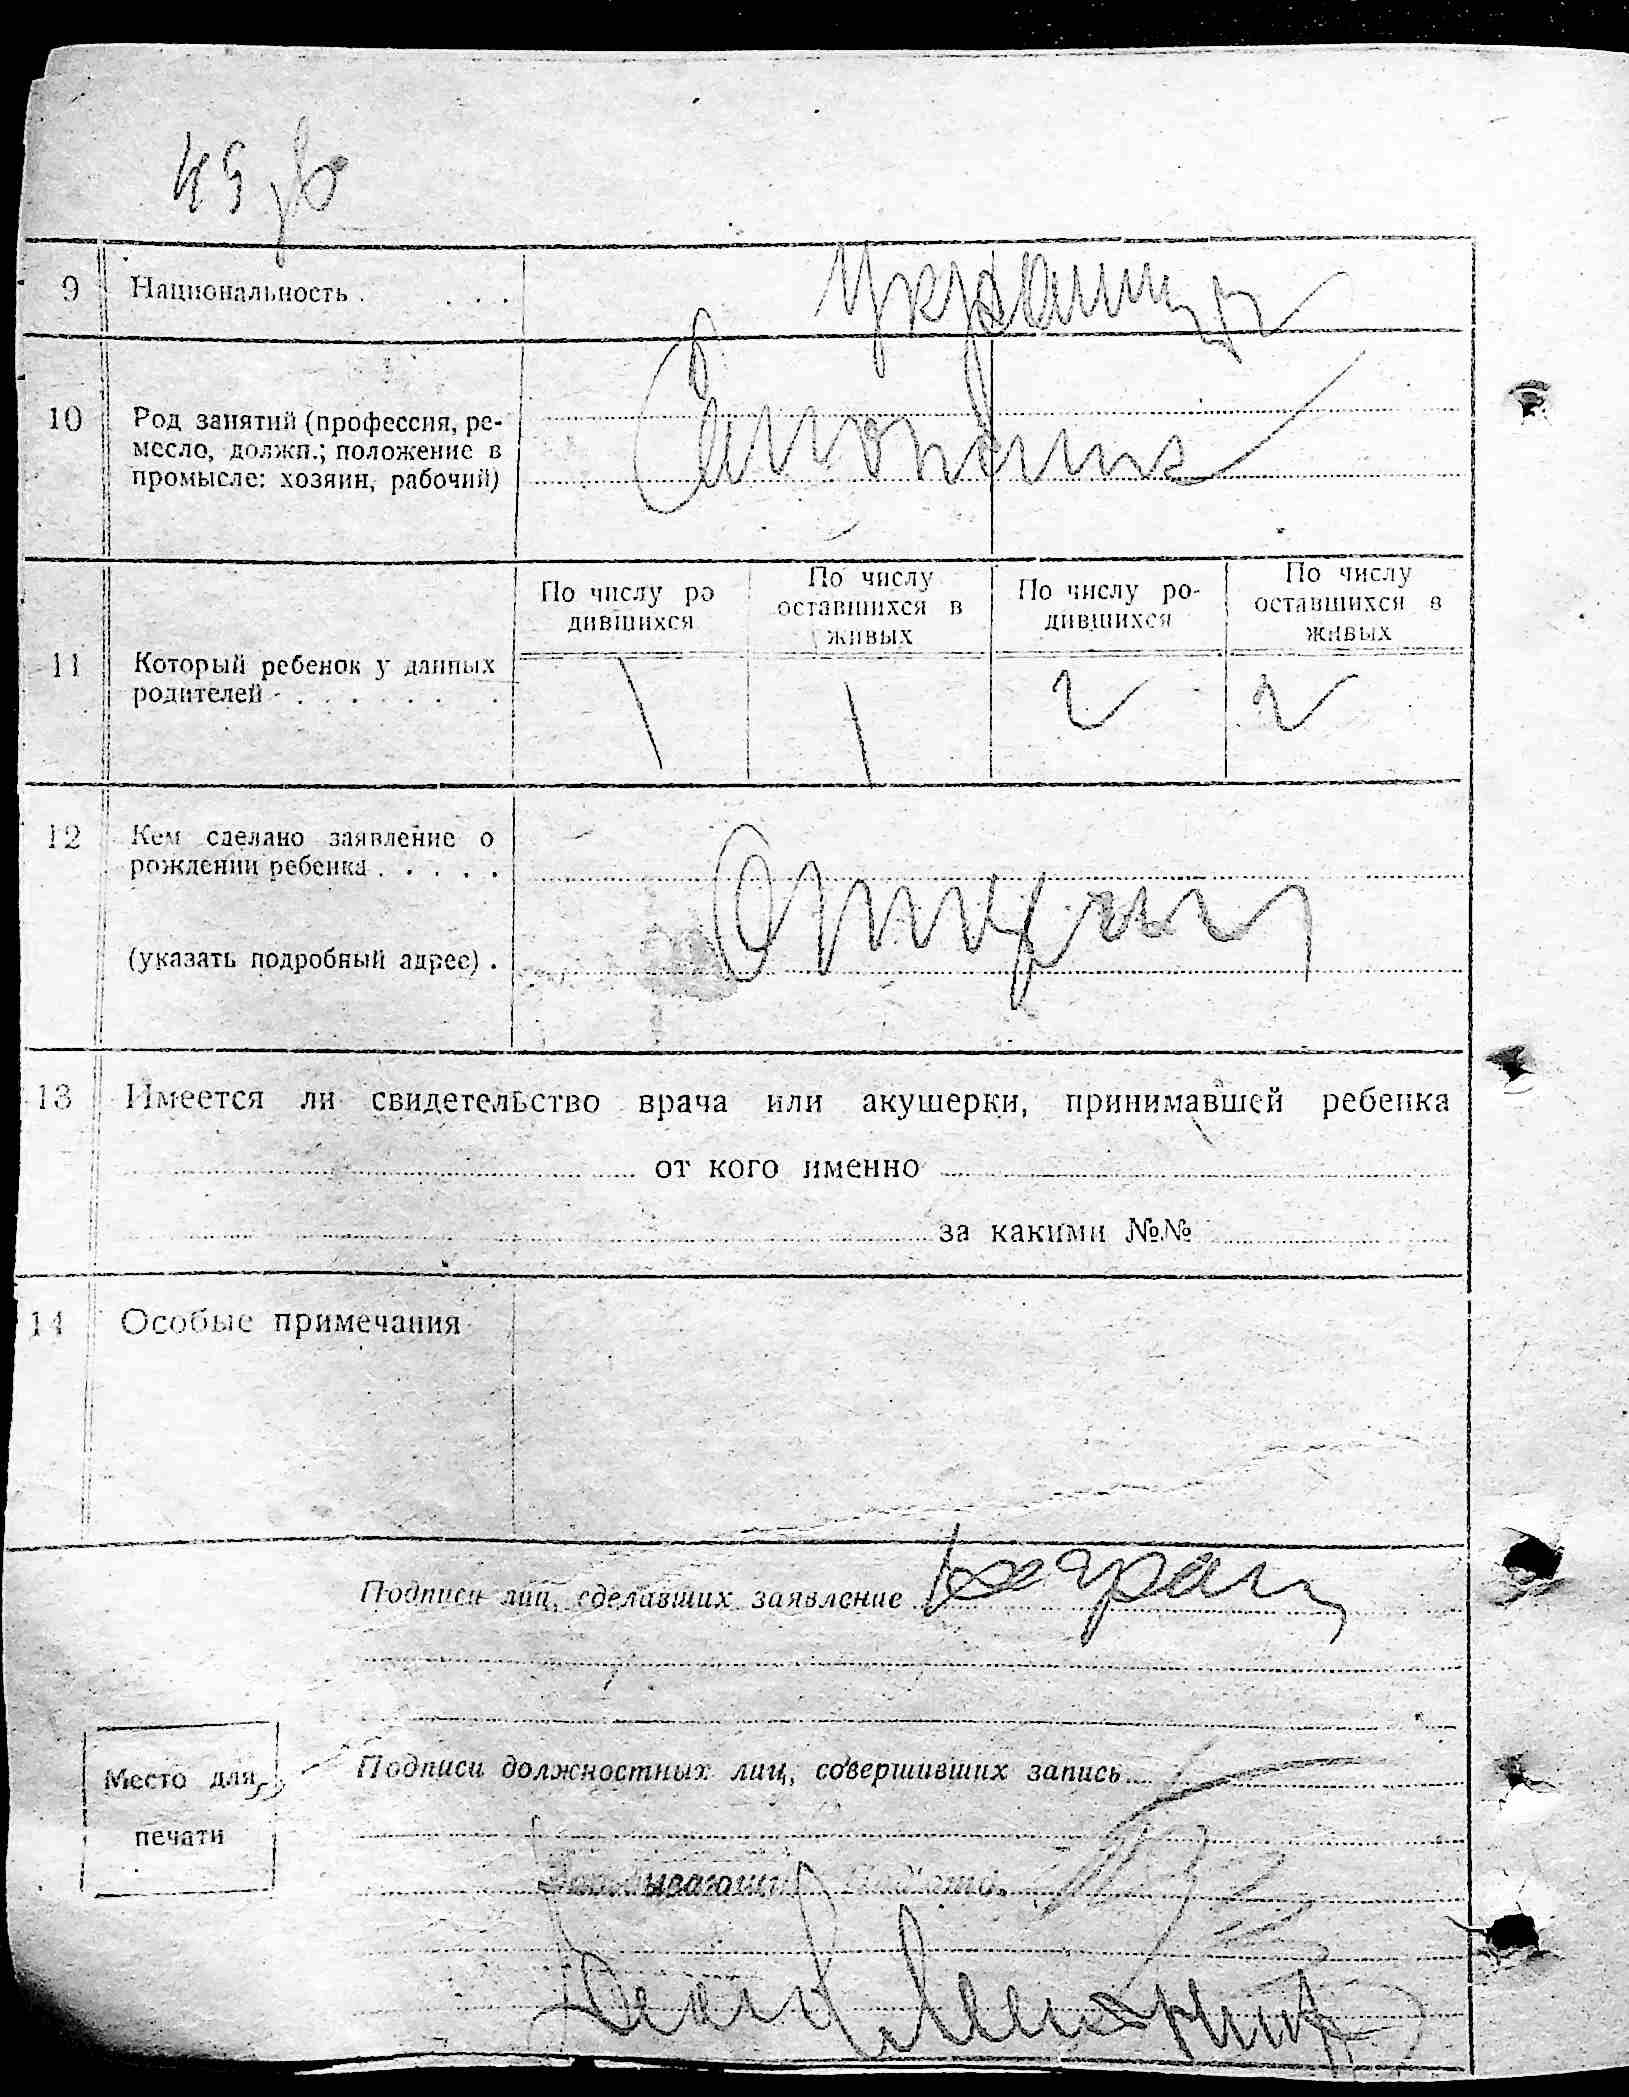 45 
9 Национальность . . . . Украинцы
10 Род занятий (профессия, ре-
месло, должн.; положение в
промысле: хозяин, рабочий)
По числу ро
дившихся
По числу
оставшихся в
живых
По числу ро-
дившихся
По числу
оставшихся в
живых
11 Который ребенок у данных
родителей . . . . . . . 2 2
12 Кем сделано заявление о
рождении ребенка . . . . .
(указать подробный адрес) . Отцом
13 Имеется ли свидетельство врача или акушерки, принимавшей ребенка
от кого именно
за какими №№
14 Особые примечания
Подписи лиц, сделавших заявление
Место для
печати
Подписи должностных лиц, совершивших запись